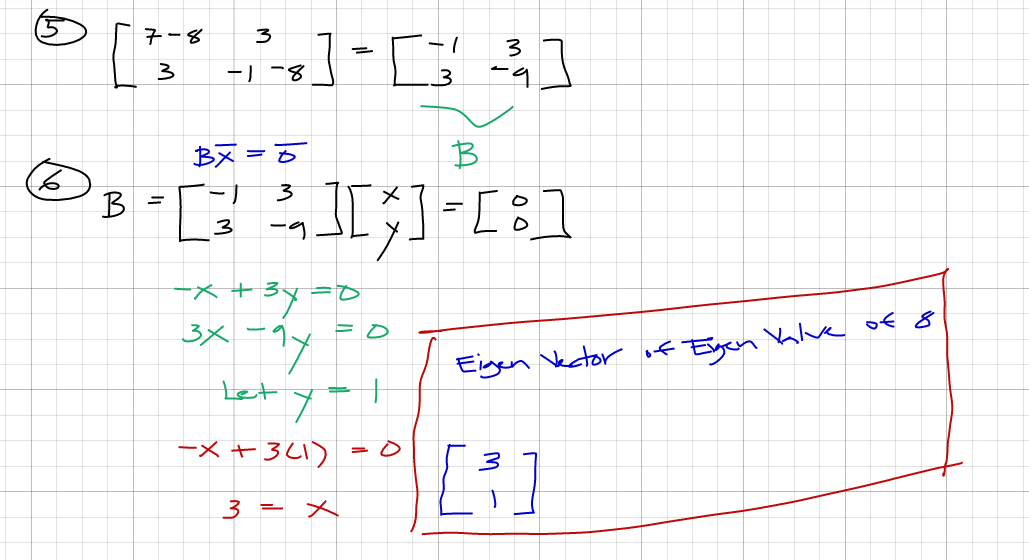 5
[ 7-8 3 ] = [ -1 3 ]
[ 3 -1-8 ] [ 3 -9 ]
B
Bx̄ = 0̄
6
B = [ -1 3 ] [ x ] = [ 0 ]
[ 3 -9 ] [ y ] [ 0 ]
-x + 3y = 0
3x - 9y = 0
Let y = 1
-x + 3(1) = 0
3 = x
Eigen Vector of Eigen Value of 8
[ 3 ]
[ 1 ]